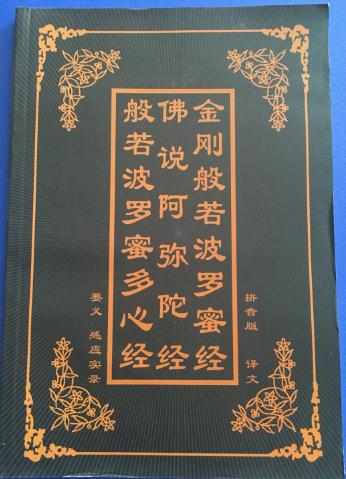 金刚般若波罗蜜经
佛说阿弥陀经
般若波罗蜜多心经
拼音版 译文
要义 感应实录